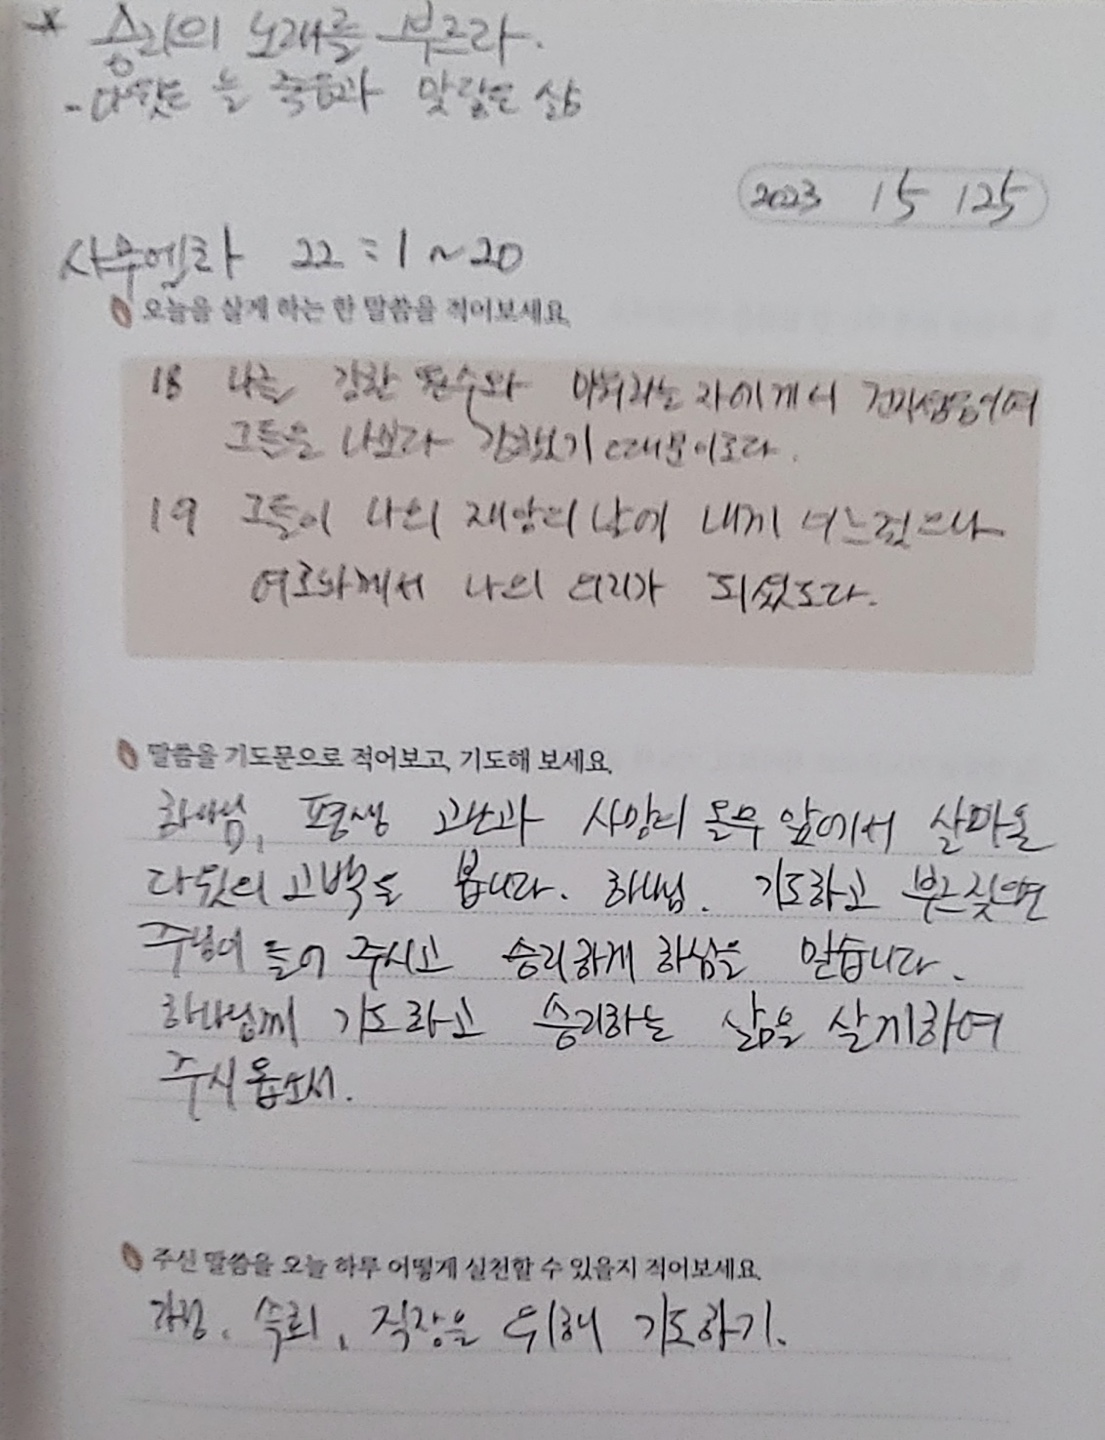 * 승리의 노래를 부르라.
- 다윗은 늘 죽음과 맞닿은 삶
2023 15 125
사무엘하 22:1~20
오늘을 살게 하는 한 말씀을 적어보세요.
18 나를 강한 원수와 미워하는 자에게서 건지셨음이여
그들은 나보다 강했기 때문이로다.
19 그들이 나의 재앙의 날에 내게 이르렀으나
여호와께서 나의 의지가 되셨도다.
말씀을 기도문으로 적어보고, 기도해 보세요.
하나님, 평생 고난과 사망의 올무 앞에서 살아온
다윗의 고백을 봅니다. 하나님. 기도하고 부르짖으면
주님이 들어 주시고 승리하게 하심을 믿습니다.
하나님께 기도하고 승리하는 삶을 살게하여
주시옵소서.
주신 말씀을 오늘 하루 어떻게 실천할 수 있을지 적어보세요.
가정, 속회, 직장을 위해 기도하기.